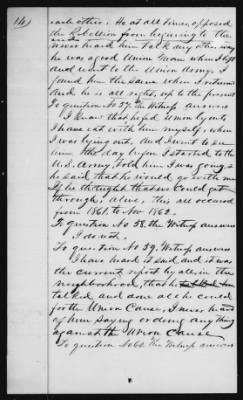 14
each other. He at all times, opposed
the Rebellion from beginning to the
never heard him talk any other way
he was a good Union man when I left
and went to the Union Army. I
found him the same when I returned
and he is all right, up to the present
To question No 37. the Witness answers
I know that he fed Union lyouts
I have eat with him myself, when
I was lying out, and I went to see
him the day before I started to the
U.S. Army, told him I was going &
he said that he would go with me
if he thought that we could get
through, alive, this all occured
from 1861. to Nov 1862.
To question No 38. the Witness answers
I do not.
To question No 39. Witness answers
I have heard it said, and it was
the current report by all, in the
neighborhood, that he
talked and done all he could
for the Union Cause, I never heard
of him saying or doing anything
against the Union Cause
To question No 62. the Witness answers